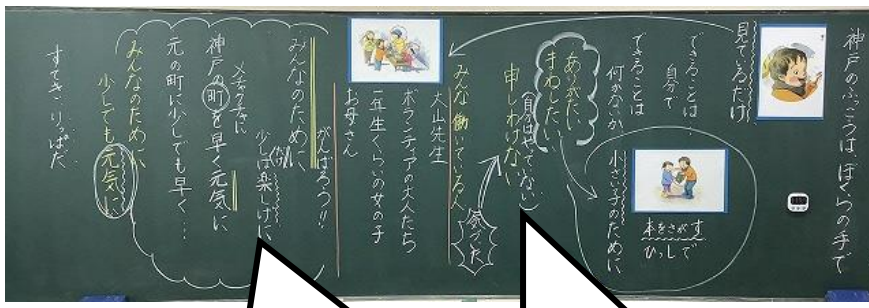 神戸のふっこうは、ぼくらの手で
見ているだけ
できることは…
自分で
できることは
何かないか
小さい子のために
本をさがす
ひっしで
ありがたい
申しわけない
(自分はやっていない)
気づいた
みんな働いている人
大山先生
ボランティアの大人たち
一年生くらいの女の子
お母さん
がんばろう!!
みんなのために
少しは楽しげに
神戸の町を早く元気に
元の町に少しでも早く…
みんなのために
少しでも元気に
すてき・りっぱだ